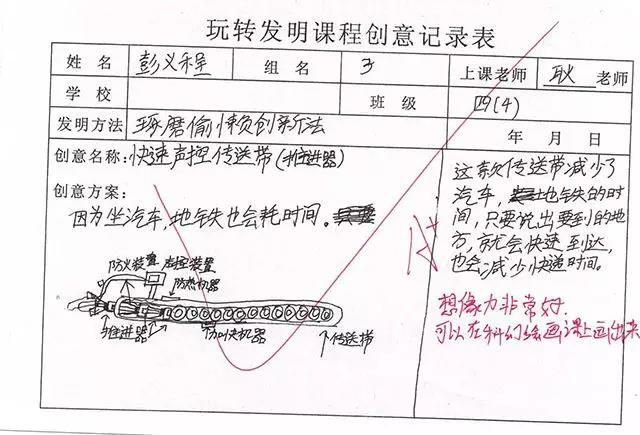 玩转发明课程创意记录表
姓 名 彭义程 组 名 3 上课老师 耿 老师
学 校 班 级 四(4)
发明方法 琢磨偷懒创新法 年 月 日
创意名称: 快速声控传送带(推进器)
创意方案:
因为坐汽车,地铁也会耗时间。
防火装置 声控装置
防热机器
推进器 加快机器 传送带
这款传送带减少了
汽车, 地铁的时
间,只要说出要到的地
方,就会快速到达,
也会减少快递时间。
想像力非常好.
可以在科幻绘画课上画出来